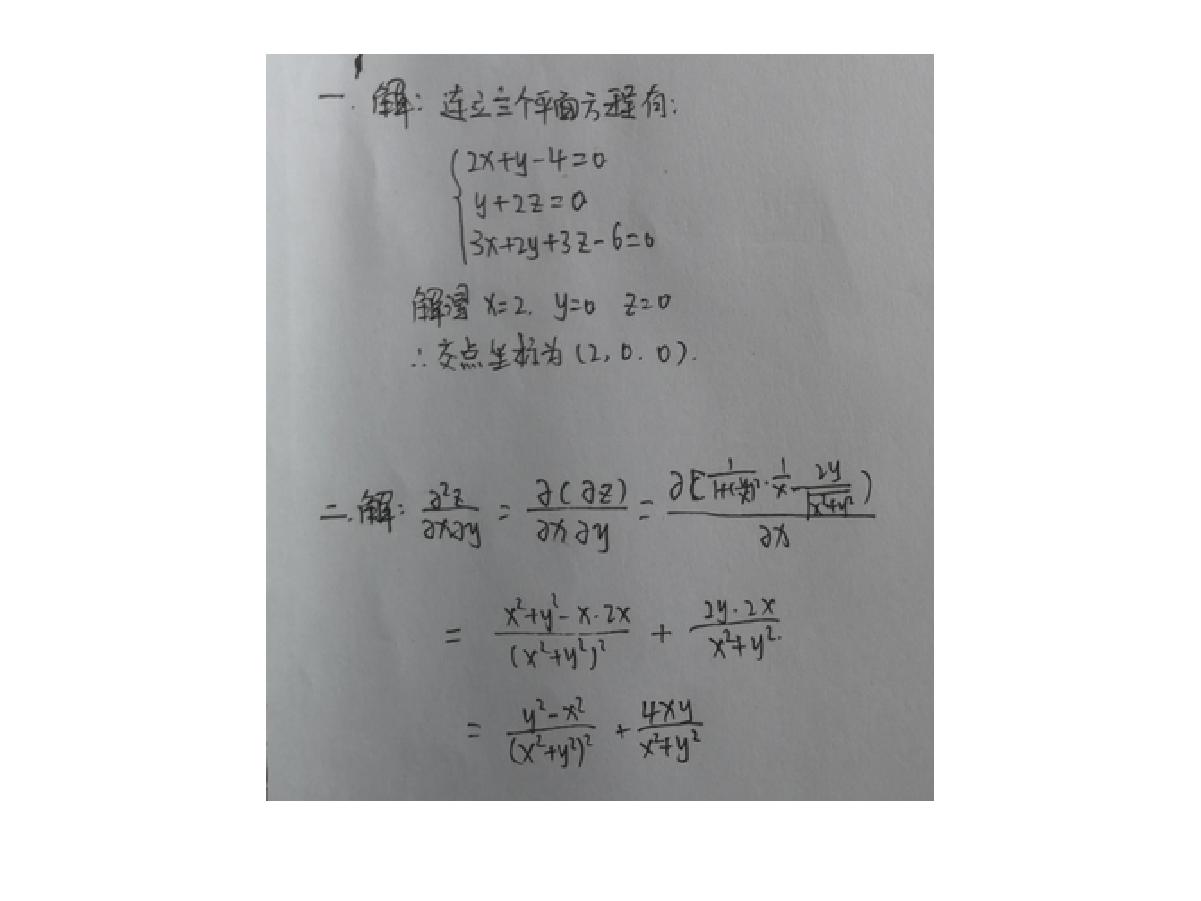 一. 解: 连立三个平面方程有:
2x+y-4=0
y+2z=0
3x+2y+3z-6=0
解得 x=2. y=0 z=0
∴交点坐标为(2,0.0).
二.解: ∂²z/∂x∂y = ∂(∂z)/∂x∂y = ∂[1/(1+(y/x)²)·1/x - 2y/√(x²+y²))/∂x
= (x²+y²-x·2x)/(x²+y²)² + (2y·2x)/(x²+y²)
= (y²-x²)/(x²+y²)² + 4xy/(x²+y²)